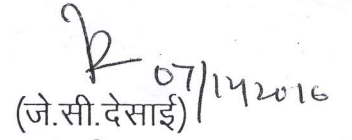 07/14/2016
(जे.सी.देसाई)